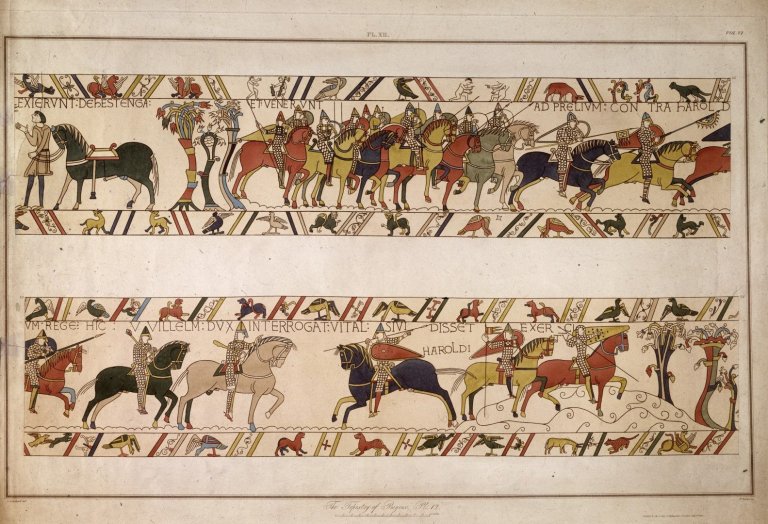 PL. XII.
EXIERVNT: DEHESTENGA: ETVENERVNT AD PRELIVM: CONTRA HAROLD
VM: REGE: HIC: VVILLELM: DVX INTERROGAT: VITAL: SIVI DISSET EXER CI
HAROLDI
The Tapestry of Bayeux, Pl. 12.